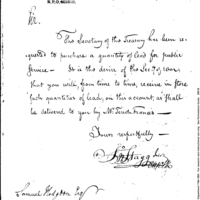 Sir.
The Secretary of the Treasury has been re-
quested to purchase a quantity of lead for public
service — It is the desire of the Secy of War
that you will from time to time, receive in store
such quantities of lead, on this account, as shall
be delivered to you by Mr. Tench Francis —
Yours respectfully —
Samuel Hodgdon Esqr